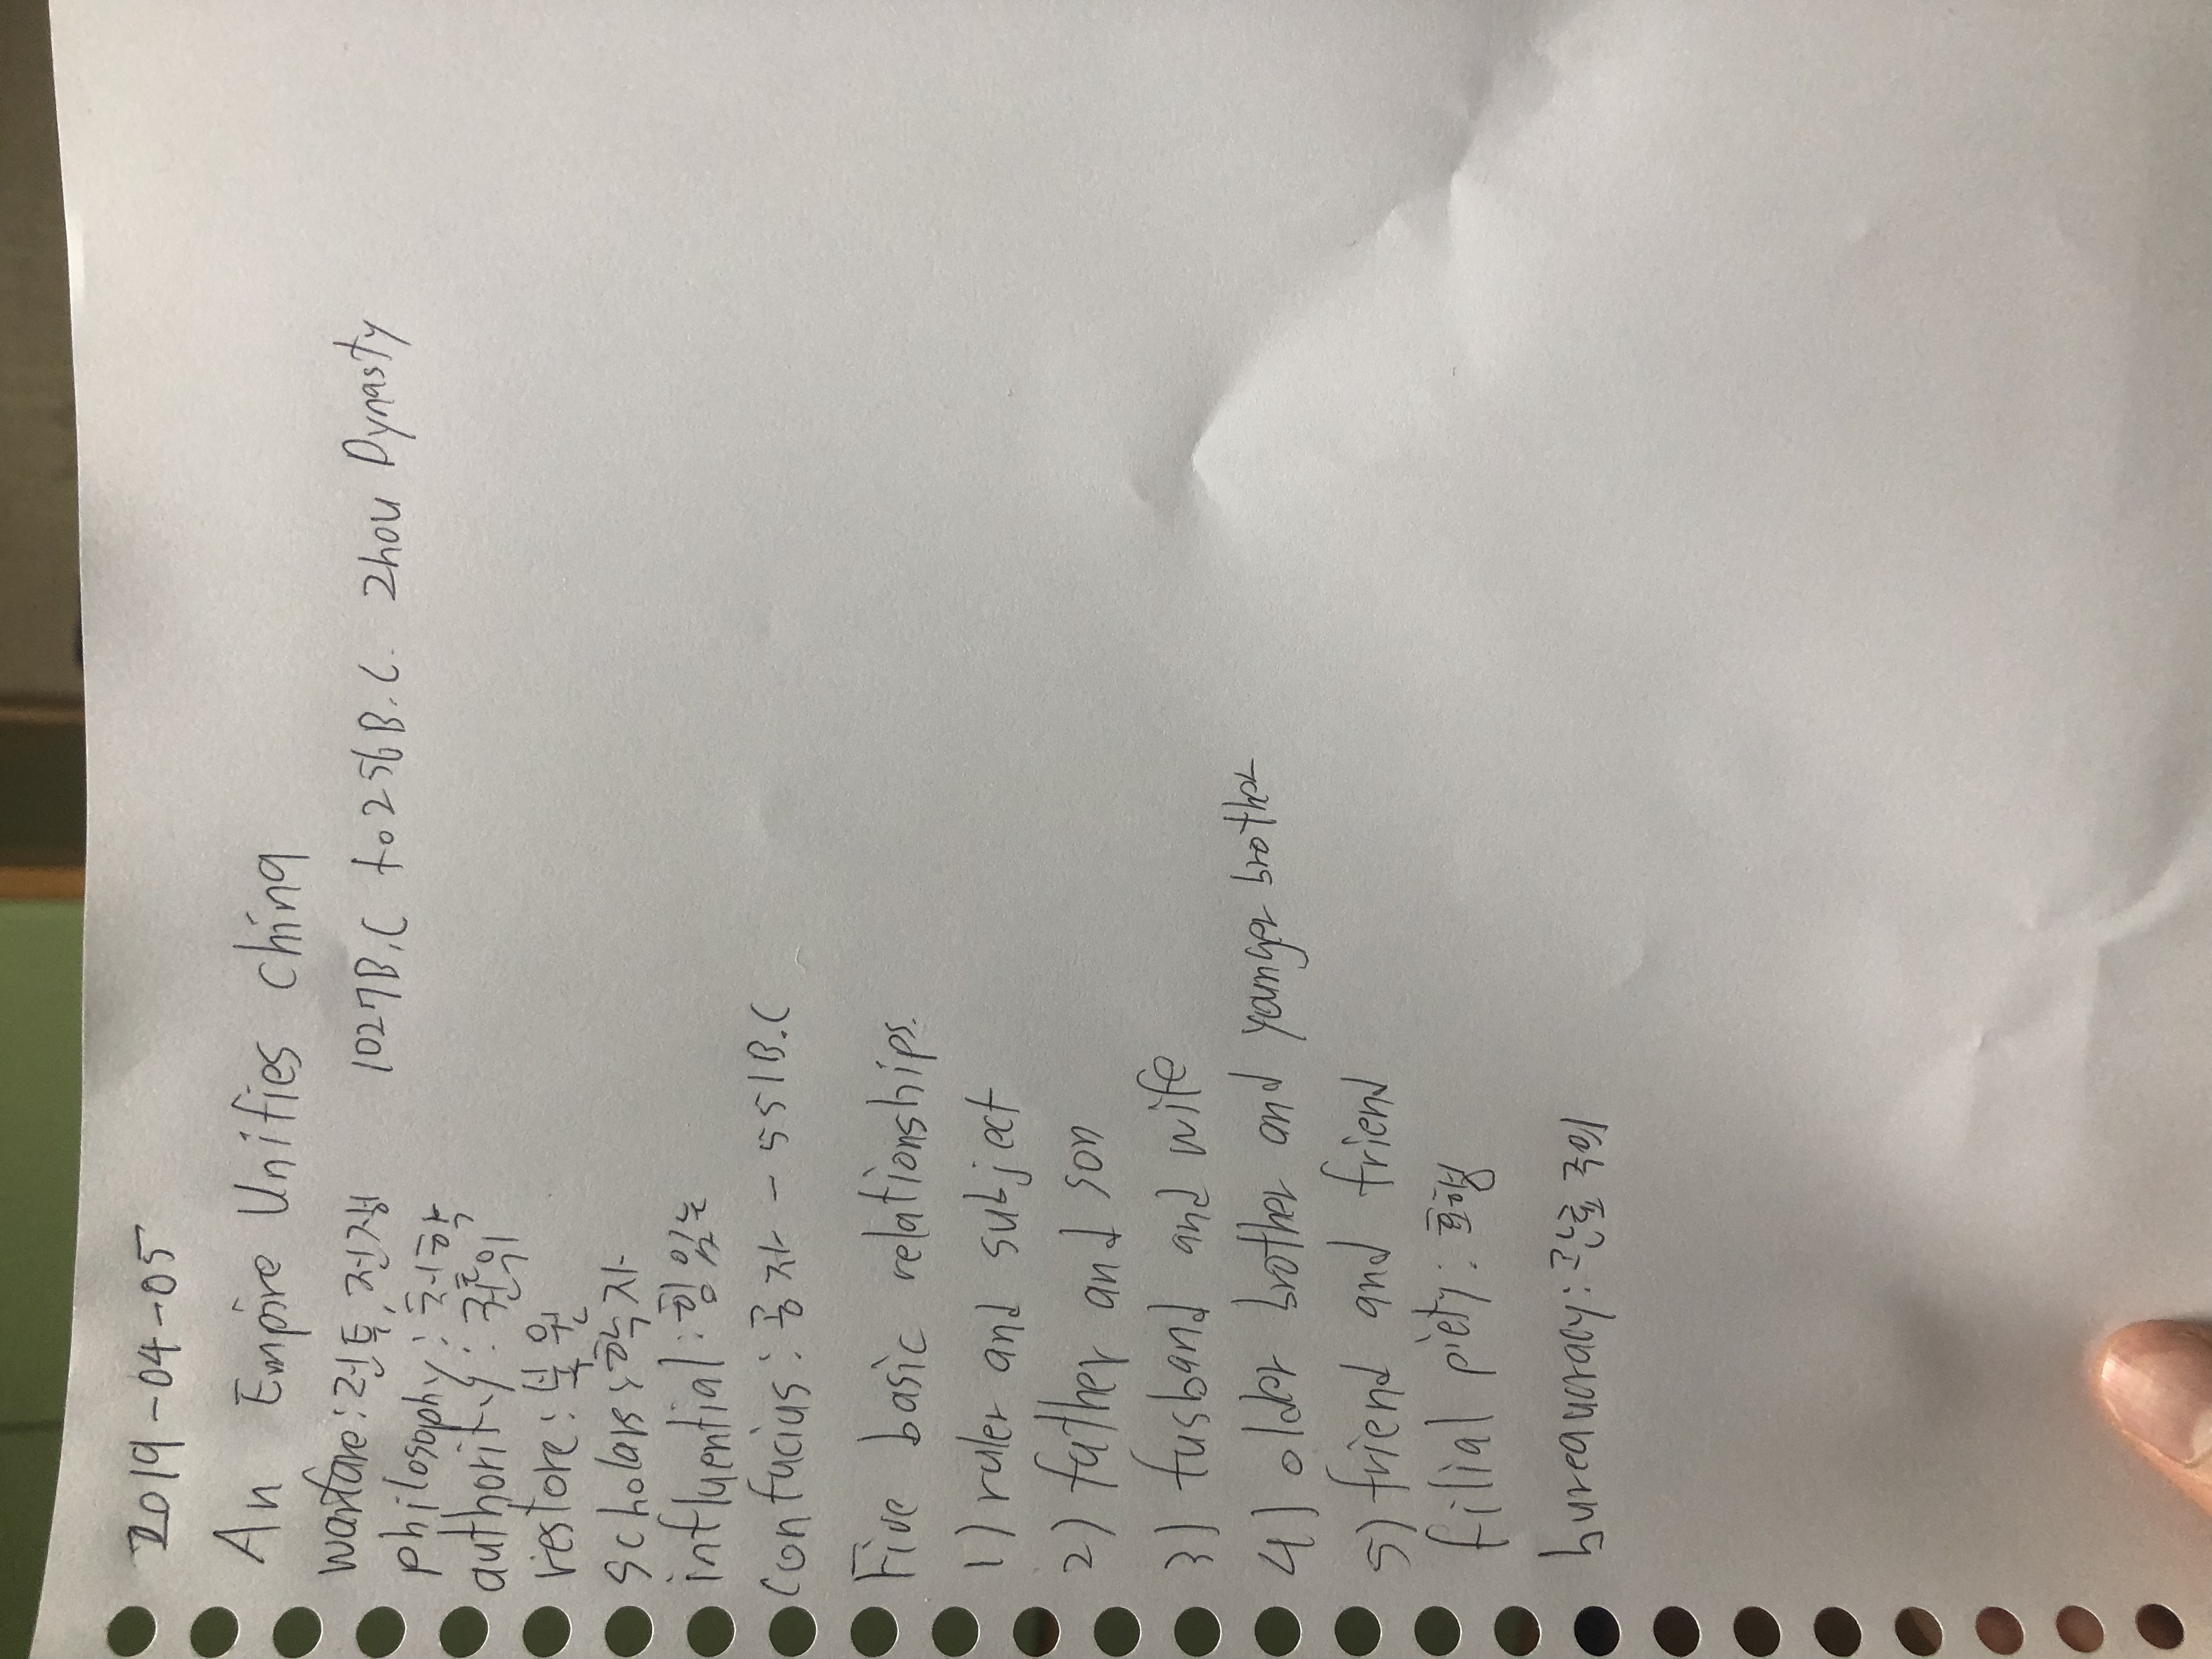 2019-04-05
An Empire Unifies China
warfare: 전투, 전쟁 1027B.C to 256B.C. Zhou Dynasty
philosophy: 철학
authority: 권위
restore: 복원
scholars: 학자
influential: 힘 있는
Confucius: 공자 - 551B.C
Five basic relationships.
1) ruler and subject
2) father and son
3) fusband and wife
4) older brother and younger brother
5) friend and friend
filial piety: 효행
bureaucracy: 관료 주의